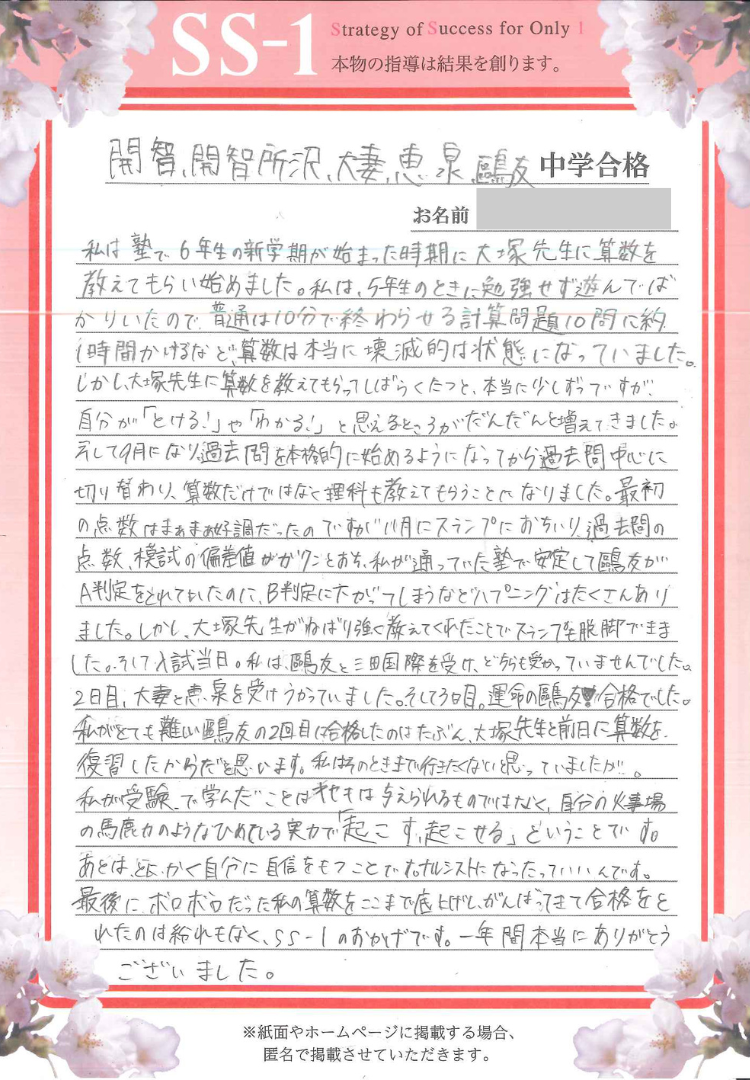 SS-1
Strategy of Success for Only 1
本物の指導は結果を創ります。
開智、開智所沢、大妻、恵泉、鷗友 中学合格
お名前
私は塾で6年生の新学期が始まった時期に大塚先生に算数を
教えてもらい始めました。私は、5年生のときに勉強せず遊んでば
かりいたので、普通は10分で終わらせる計算問題10問に約
1時間かけるなど、算数は本当に壊滅的は状態になっていました。
しかし、大塚先生に算数を教えてもらってしばらくたつと、本当に少しずつですが、
自分が「とける!」や「わかる!」と思えるところがだんだんと増えてきました。
そして9月になり、過去問を本格的に始めるようになってから過去問中心に
切り替わり、算数だけではなく理科も教えてもらうことになりました。最初
の点数はまあまあ好調だったのですが、11月にスランプにおちいり、過去問の
点数、模試の偏差値がガクンとおち、私が通っていた塾で安定して鷗友が
A判定をとれていたのに、B判定に下がってしまうなどハプニングはたくさんあり
ました。しかし、大塚先生がねばり強く教えてくれたことでスランプを脱脚できま
した。そして入試当日。私は、鷗友と三田国際を受け、どちらも受かっていませんでした。
2日目、大妻と恵泉を受けうかっていました。そして3日目。運命の鷗友!合格でした。
私がとても難しい鷗友の2回目に合格したのはたぶん、大塚先生と前日に算数を
復習したからだと思います。私はそのときまで行きたくないと思っていましたが…。
私が受験で学んだことはキセキは与えられるものではなく、自分の火事場
の馬鹿力のようなひめている実力で「起こす、起こせる」ということです。
あとは、とにかく自分に自信をもつことです。ナルシストになったっていいんです。
最後に、ボロボロだった私の算数をここまで底上げし、がんばってきて合格をと
れたのは紛れもなく、SS-1のおかげです。一年間本当にありがとう
ございました。
※紙面やホームページに掲載する場合、
匿名で掲載させていただきます。